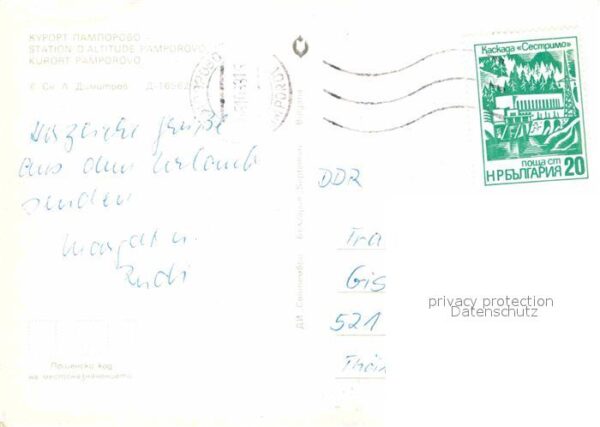 КУРОРТ ПАМПОРОВО
STATION D'ALTITUDE PAMPOROVO
KURORT PAMPOROVO
Сн. Л. Димитров Д-16562
Herzliche Grüße
aus dem Urlaub
senden
Margot u.
Rudi
Пощенски код
на местоназначението
ДИ Септември България
Каскада «Сестримо»
поща ст
НР БЪЛГАРИЯ 20
DDR
Tra
Gis
521
Thür
privacy protection
Datenschutz